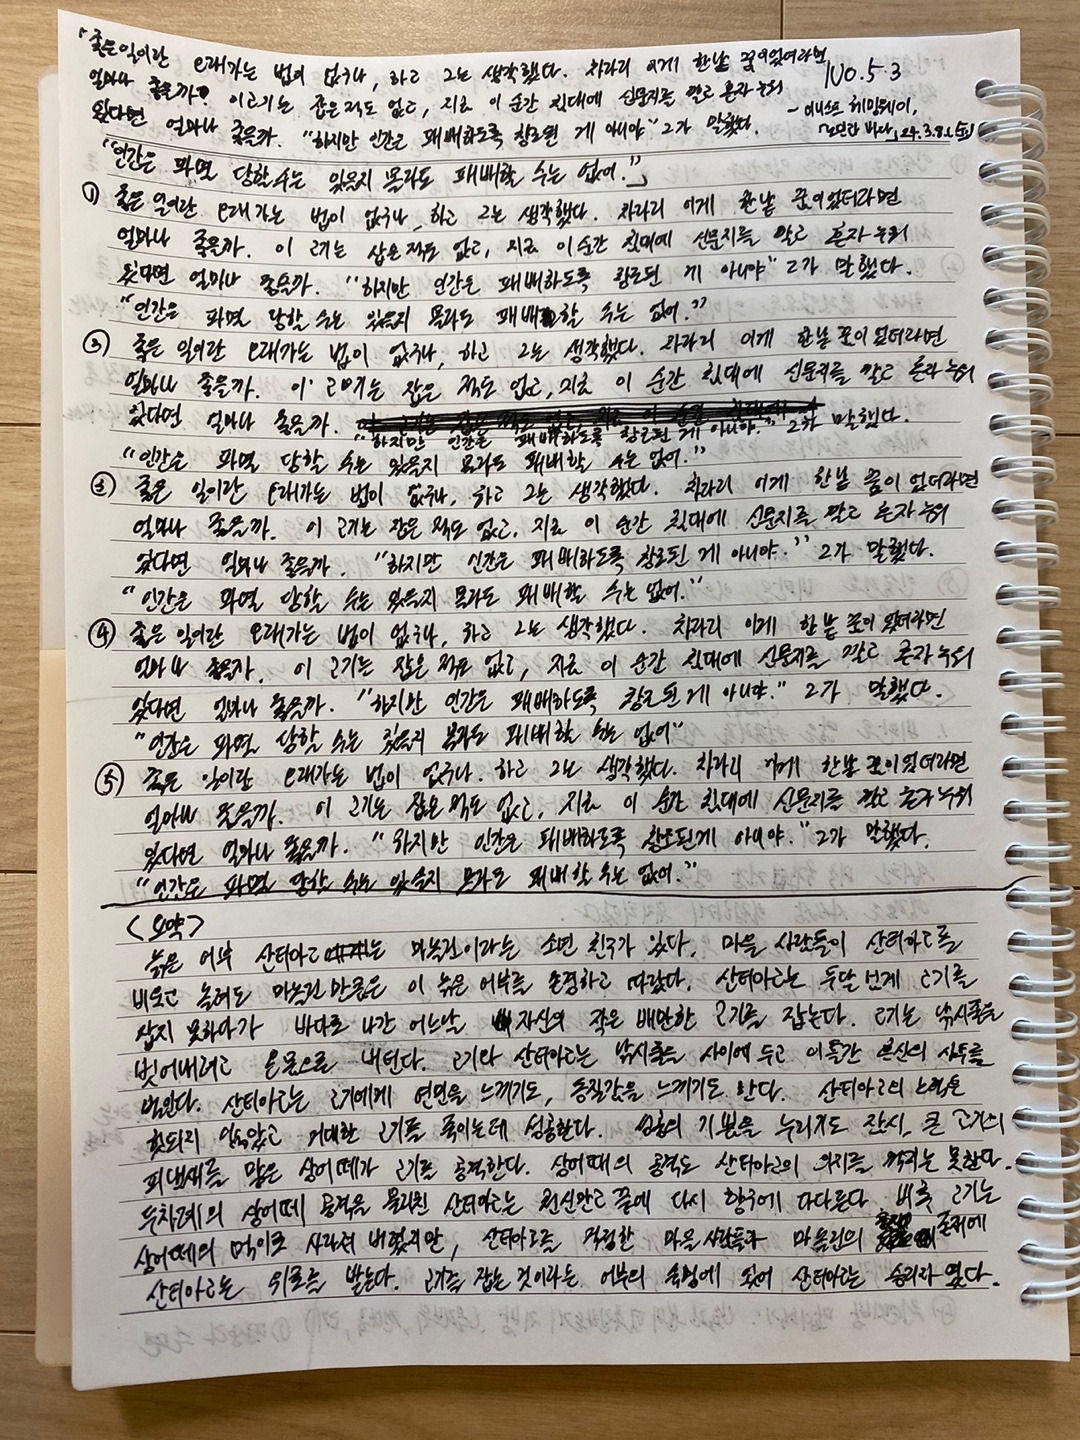 「좋은 일이란 오래가는 법이 없구나, 하고 그는 생각했다. 차라리 이게 한낱 꿈이었더라면
NO.5-3
얼마나 좋을까? 이 고기는 잡은 적도 없고, 지금 이 순간 침대에 신문지를 깔고 혼자 누워
있다면 얼마나 좋을까. "하지만 인간은 패배하도록 창조된 게 아니야" 그가 말했다.
- 어니스트 헤밍웨이,
「노인과 바다」 24.3.8.(토)
"인간은 파멸 당할 수는 있을지 몰라도 패배할 수는 없어."」
① 좋은 일이란 오래가는 법이 없구나, 하고 그는 생각했다. 차라리 이게 한낱 꿈이었더라면
얼마나 좋을까. 이 고기는 잡은 적도 없고, 지금 이 순간 침대에 신문지를 깔고 혼자 누워
있다면 얼마나 좋을까. "하지만 인간은 패배하도록 창조된 게 아니야" 그가 말했다.
"인간은 파멸 당할 수는 있을지 몰라도 패배할 수는 없어."
③ 좋은 일이란 오래가는 법이 없구나, 하고 그는 생각했다. 차라리 이게 한낱 꿈이었더라면
얼마나 좋을까. 이 고기는 잡은 적도 없고, 지금 이 순간 침대에 신문지를 깔고 혼자 누워
있다면 얼마나 좋을까.
"하지만 인간은 패배하도록 창조된 게 아니야." 그가 말했다.
"인간은 파멸 당할 수는 있을지 몰라도 패배할 수는 없어."
좋은 일이란 오래가는 법이 없구나, 하고 그는 생각했다. 차라리 이게 한낱 꿈이었더라면
얼마나 좋을까. 이 고기는 잡은 적도 없고, 지금 이 순간 침대에 신문지를 깔고 혼자 누워
있다면 얼마나 좋을까. "하지만 인간은 패배하도록 창조된 게 아니야." 그가 말했다.
"인간은 파멸 당할 수는 있을지 몰라도 패배할 수는 없어."
④ 좋은 일이란 오래가는 법이 없구나, 하고 그는 생각했다. 차라리 이게 한낱 꿈이었더라면
얼마나 좋을까, 이 고기는 잡은 적도 없고, 지금 이 순간 침대에 신문지를 깔고 혼자 누워
있다면 얼마나 좋을까. "하지만 인간은 패배하도록 창조된 게 아니야." 그가 말했다.
"인간은 파멸 당할 수는 있을지 몰라도 패배할 수는 없어"
⑤ 좋은 일이란 오래가는 법이 없구나. 하고 그는 생각했다. 차라리 이게 한낱 꿈이었더라면
얼마나 좋을까. 이 고기는 잡은 적도 없고, 지금 이 순간 침대에 신문지를 깔고 혼자 누워
있다면 얼마나 좋을까. "하지만 인간은 패배하도록 창조된게 아니야." 그가 말했다.
"인간은 파멸 당할 수는 있을지 몰라도 패배할 수는 없어."
<요약>
늙은 어부 산티아고는 마놀린이라는 소년 친구가 있다. 마을 사람들이 산티아고를
비웃고 놀려도 마놀린 만큼은 이 늙은 어부를 존경하고 따랐다. 산티아고는 두달 넘게 고기를
잡지 못하다가 바다로 나간 어느날 자신의 작은 배만한 고기를 잡는다. 고기는 낚시줄을
벗어내려고 온몸으로 버틴다. 고기와 산티아고는 낚시줄을 사이에 두고 이틀간 혼신의 사투를
벌인다. 산티아고는 고기에게 연민을 느끼기도, 동질감을 느끼기도 한다. 산티아고의 노력은
헛되지 않았고 거대한 고기를 죽이는데 성공한다. 성공의 기쁨을 누리기도 잠시, 큰 고기의
피냄새를 맡은 상어떼가 고기를 공격한다. 상어떼의 공격도 산티아고의 의지를 꺾지는 못한다.
두차례의 상어떼 공격을 물리친 산티아고는 천신만고 끝에 다시 항구에 다다른다. 비록 고기는
상어떼의 먹이로 사라져 버렸지만, 산티아고를 걱정한 마을 사람들과 마놀린의 존재에
산티아고는 위로를 받는다. 고기를 잡는 것이라는 어부의 숙명에 있어 산티아고는 승리자 였다.